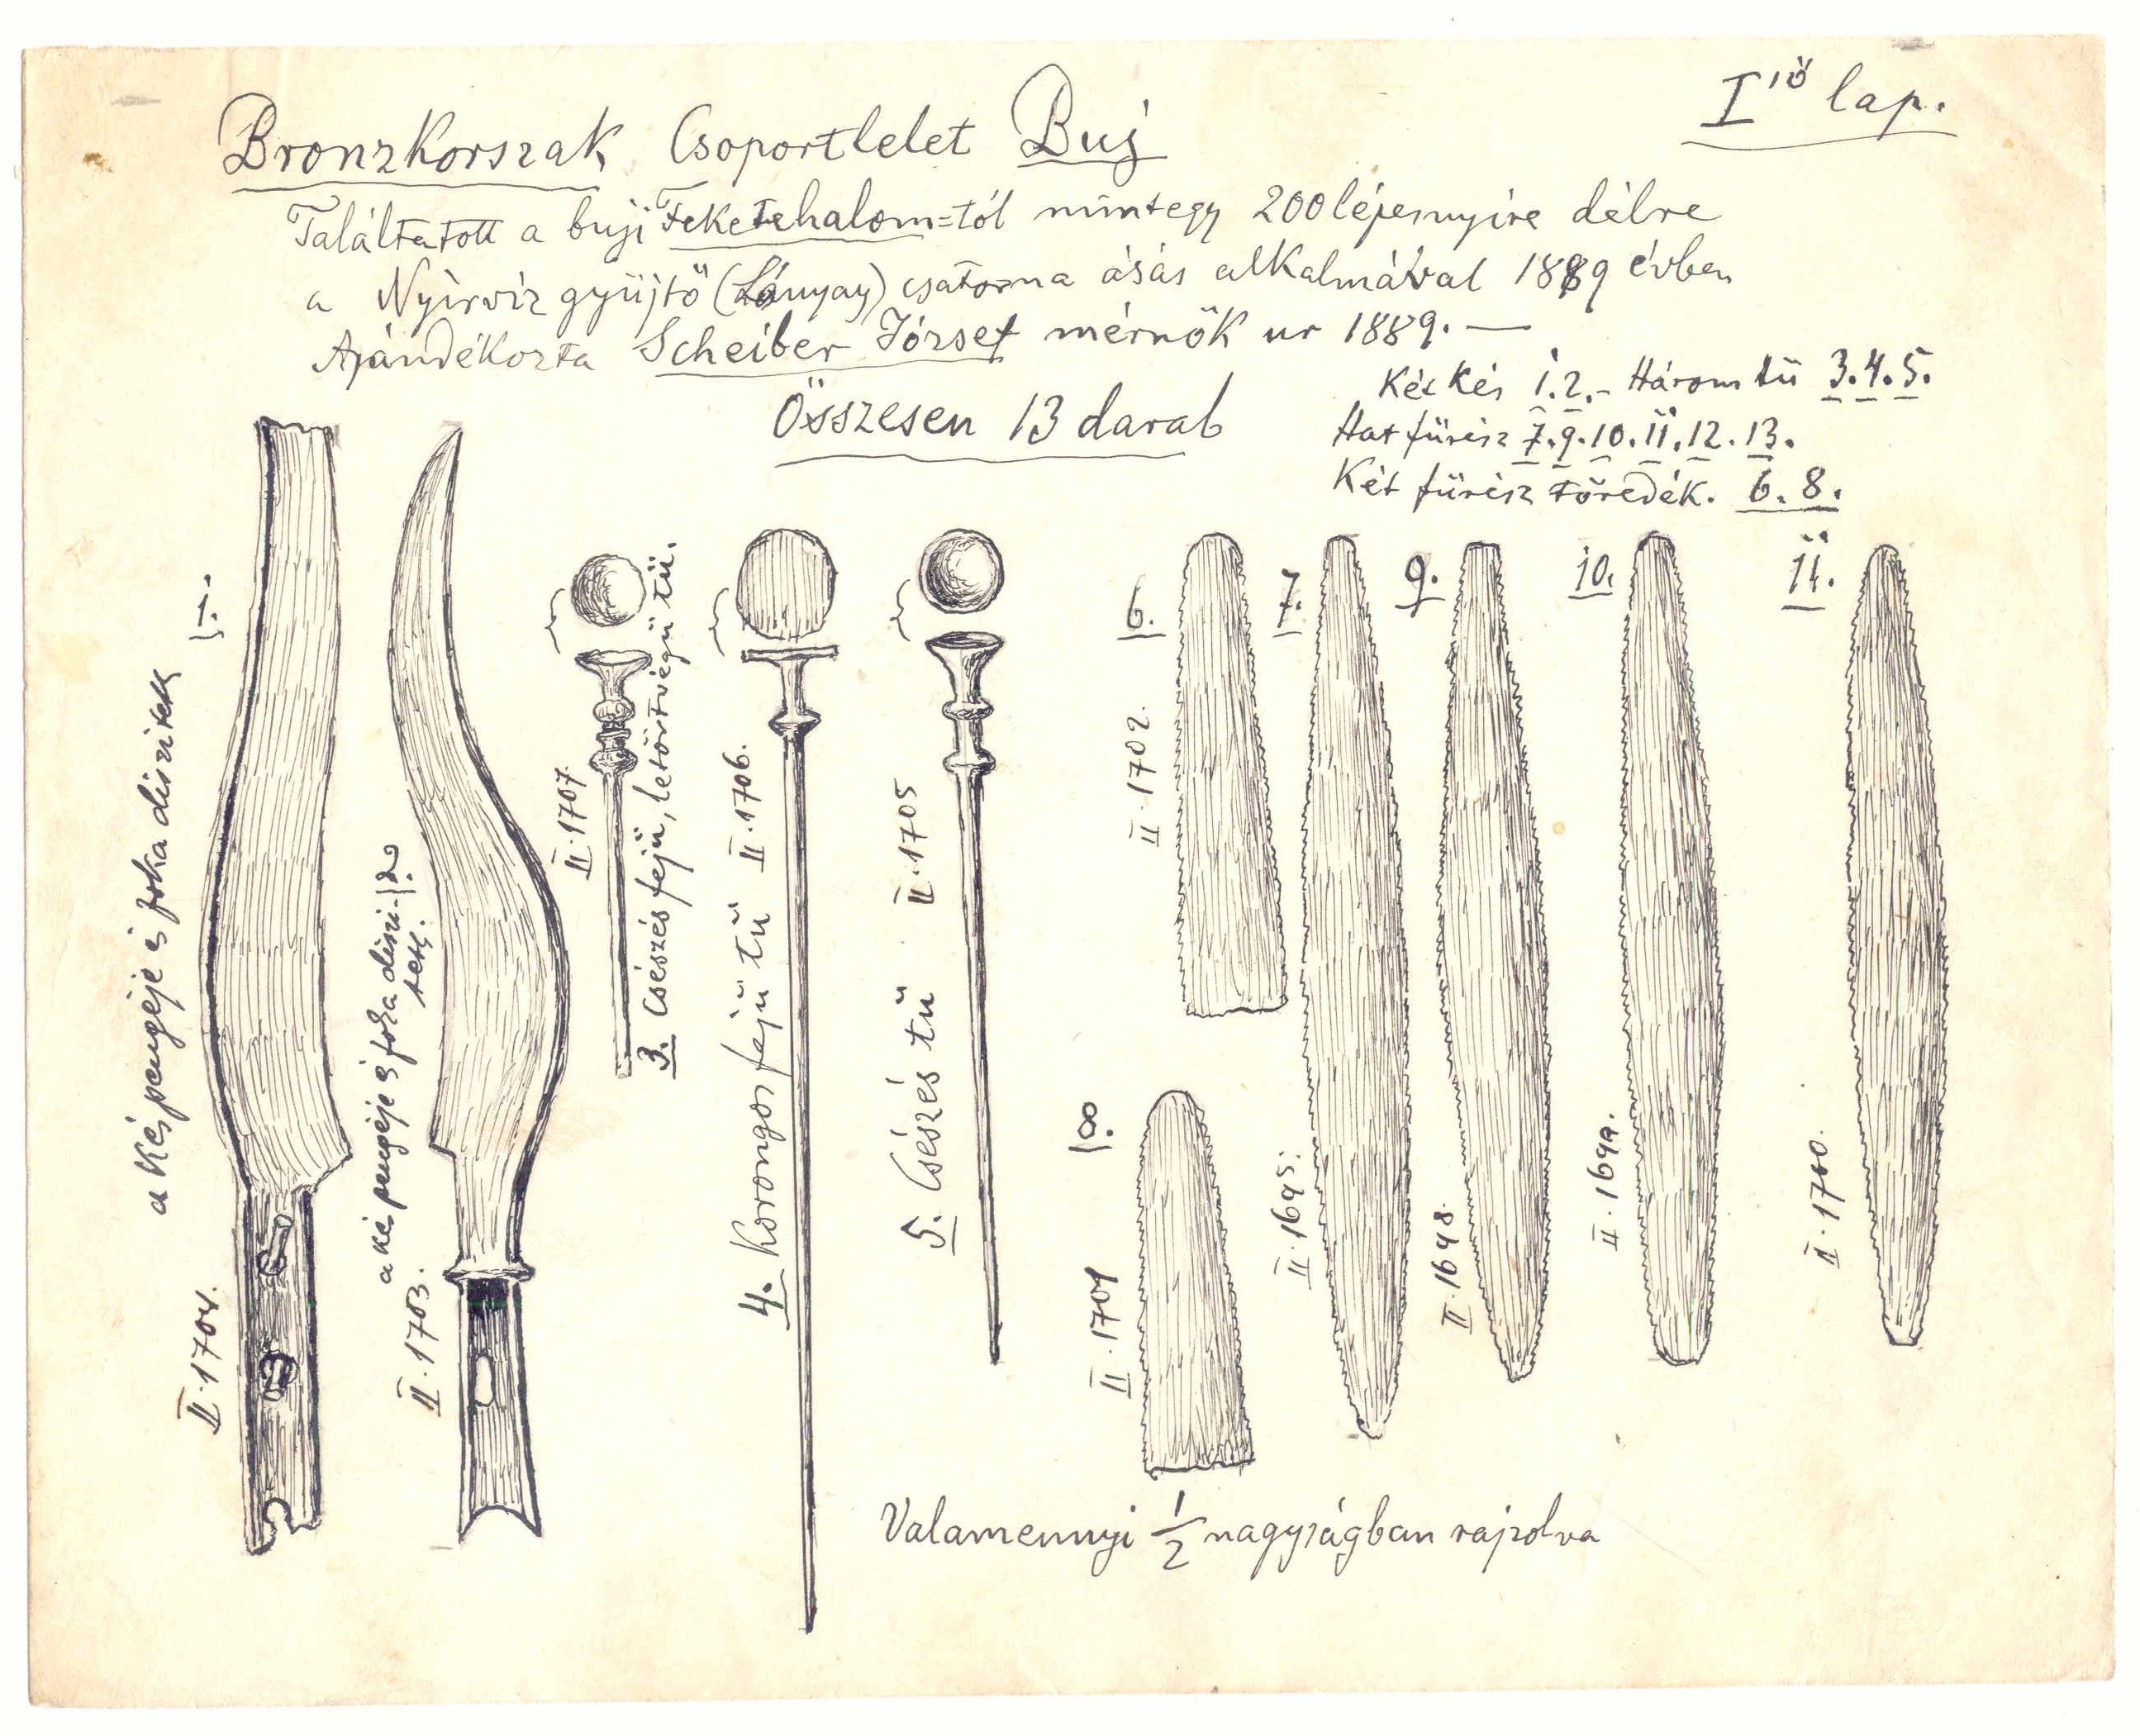 I ső lap.
Bronzkorszak Csoportlelet Buj
Találtatott a buji Feketehalom=tól mintegy 200 lépésnyire délre
a Nyirviz gyüjtő (Lónyay) csatorna ásás alkalmával 1889 évben
Ajándékozta Scheiber József mérnök ur 1889. —
Összesen 13 darab
Két kés 1.2.- Három tü 3.4.5.
Hat fürész 7.9.10.11.12.13.
Két fürész töredék. 6.8.
1.
a kés pengéje és foka diszitett
II.1704.
2.
a kés pengéje és foka diszi-
tett.
II.1703.
II.1707.
3. Csészés fejü, letörtvégü tü.
4. Korongos fejü tü II.1706.
5. Csészés tü II.1705
6.
II.1702.
7.
II.1695.
8.
II.1701
9.
II.1698.
10.
II.1699.
11.
II.1700.
Valamennyi 1/2 nagyságban rajzolva